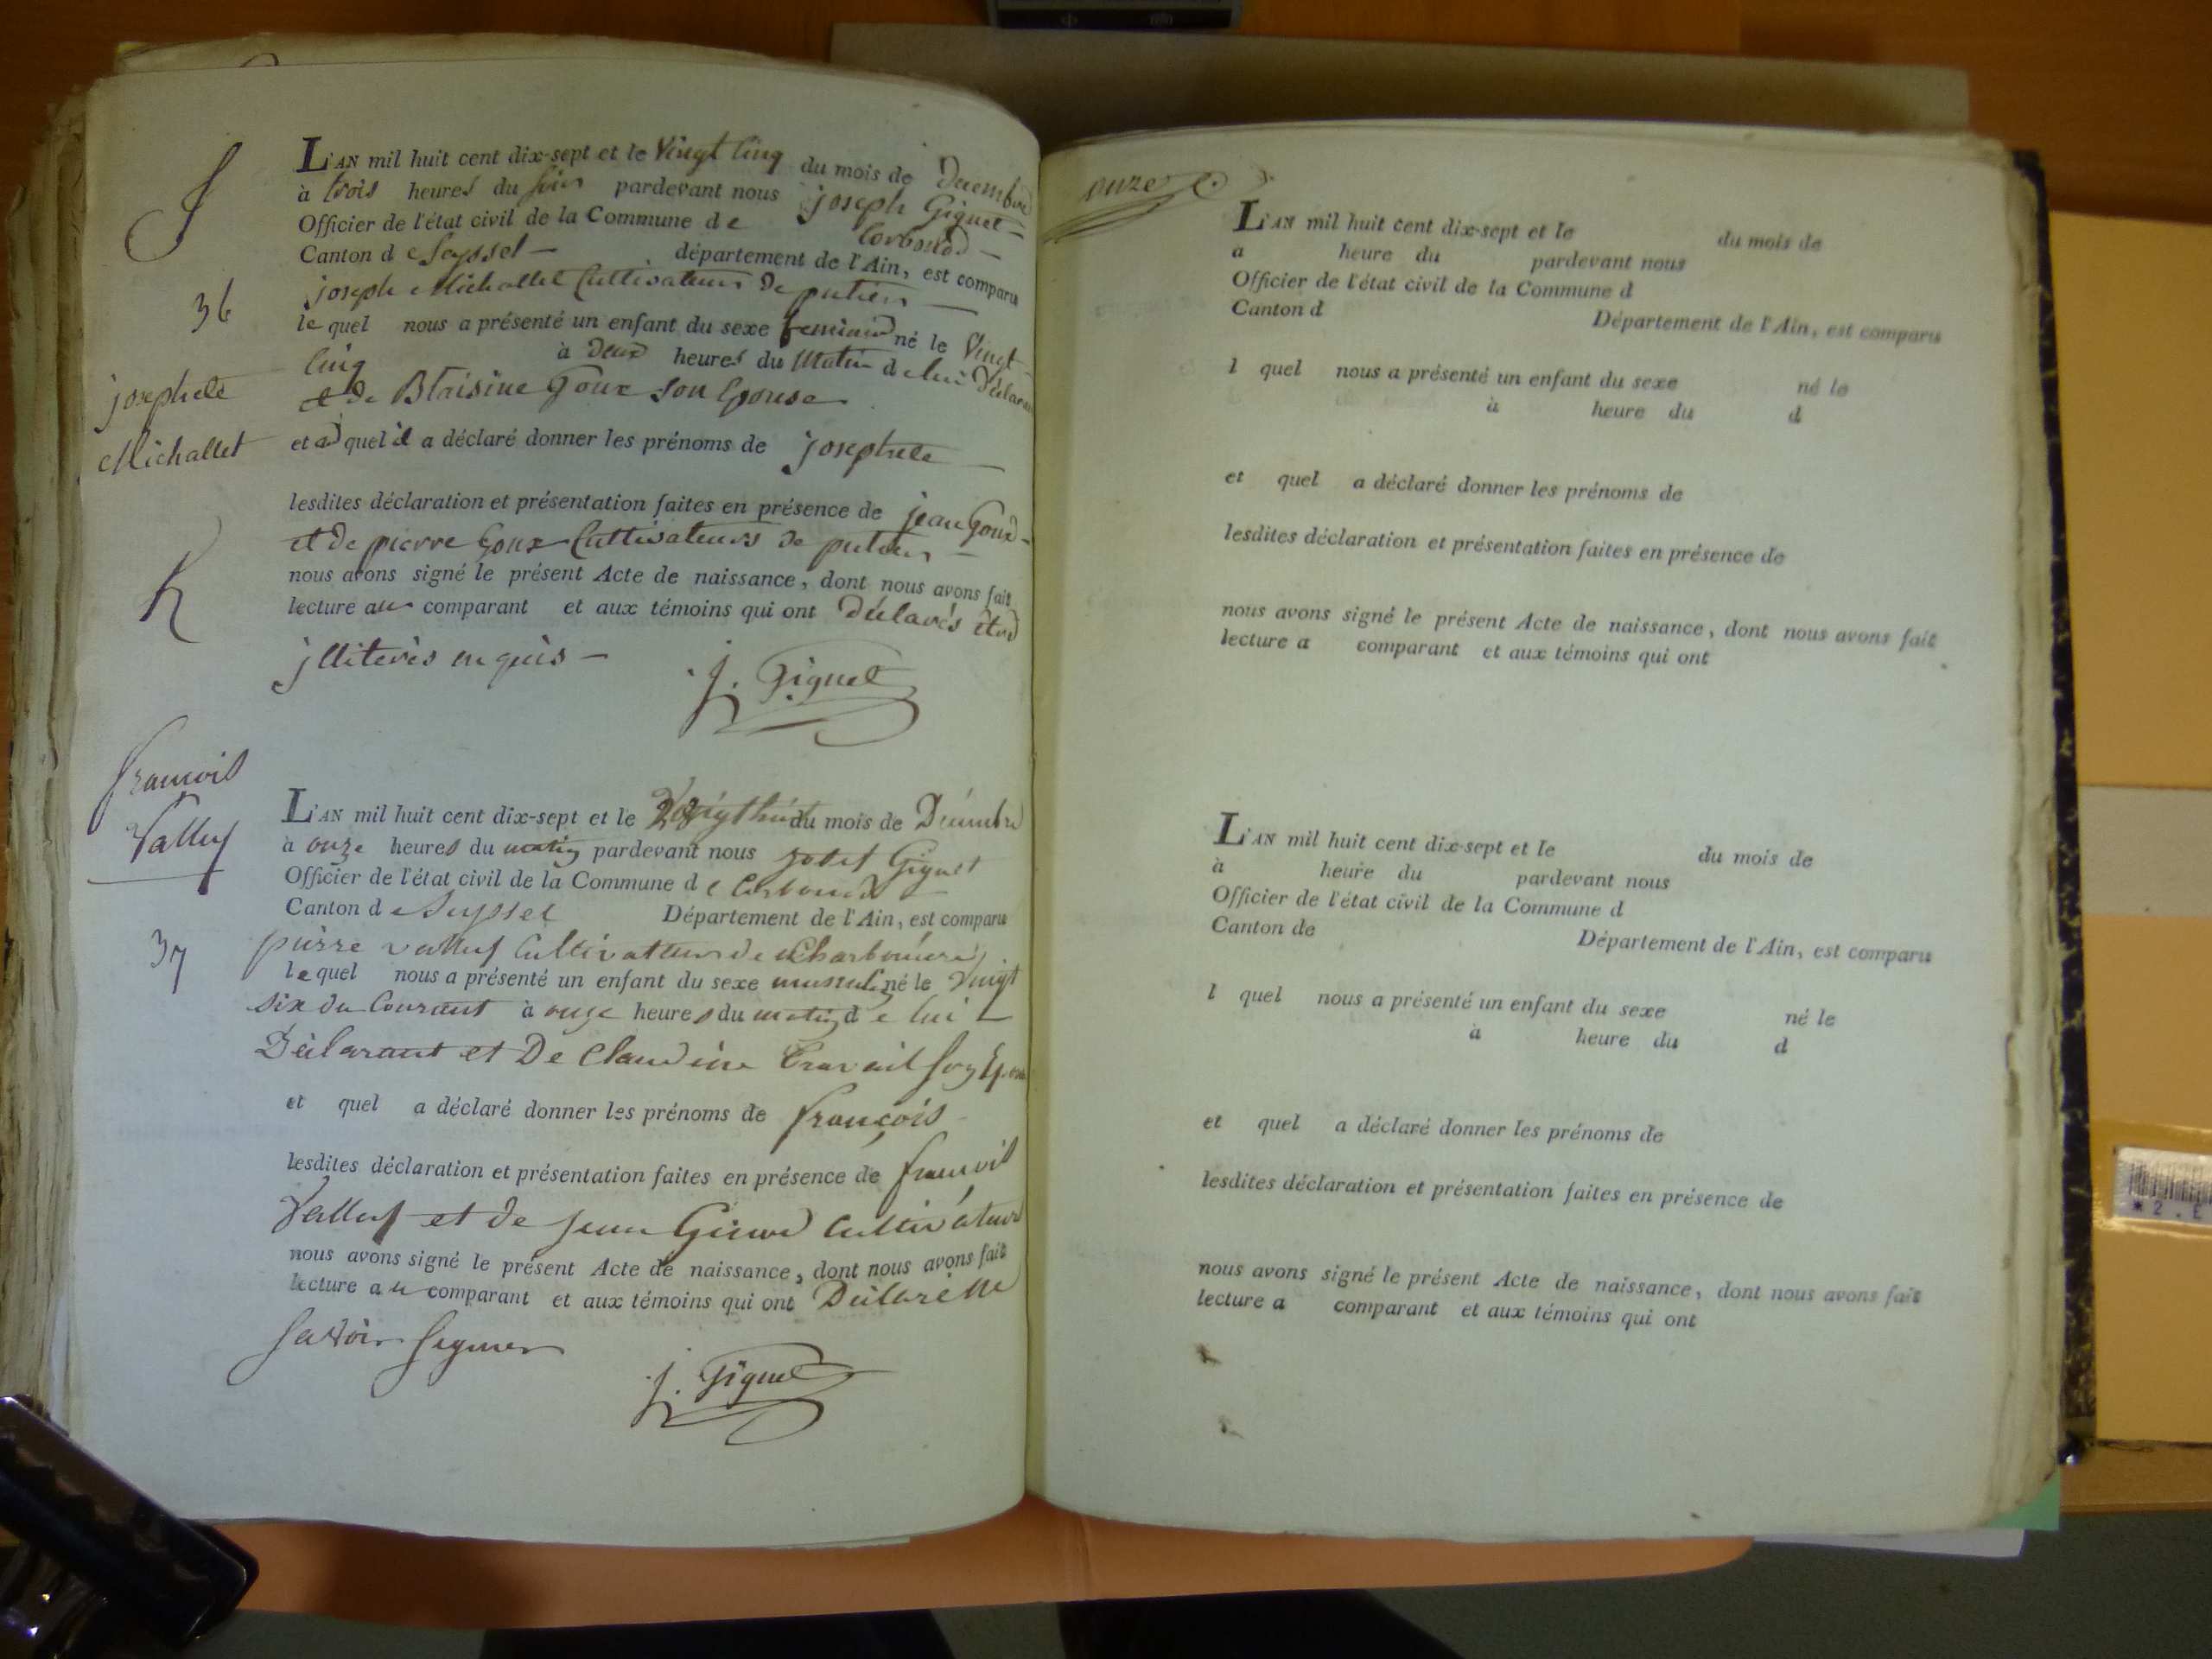 J
36
josephete
Michallet
K
L'AN mil huit cent dix-sept et le Vingt Cinq du mois de Decembre
à trois heures du soir pardevant nous joseph Giguet
Officier de l'état civil de la Commune de Corbonod
Canton de Seyssel département de l'Ain, est comparu
joseph Michallet Cultivateur de putier
lequel nous a présenté un enfant du sexe feminin né le Vingt
Cinq à deux heures du Matin de lui Déclarant
et de Blaisine Goux son Epouse
et a quel il a déclaré donner les prénoms de josephete
lesdites déclaration et présentation faites en présence de jean Goux
et de pierre Goux Cultivateurs de putier
nous avons signé le présent Acte de naissance, dont nous avons fait
lecture au comparant et aux témoins qui ont déclarés être
jlliterès enquis
j. Giguet
francois
Valluf
37
L'AN mil huit cent dix-sept et le du mois de Décembre
à onze heures du matin pardevant nous Giguet
Officier de l'état civil de la Commune de Corbonod
Canton de Seyssel Département de l'Ain, est comparu
pierre Valluf Cultivateur de
lequel nous a présenté un enfant du sexe masculin né le Vingt
six du Courant à onze heures du matin de lui
Déclarant et De Claudine Travail son Epouse
et quel a déclaré donner les prénoms de françois
lesdites déclaration et présentation faites en présence de francois
Valluf et de jean Cultivateurs
nous avons signé le présent Acte de naissance, dont nous avons fait
lecture au comparant et aux témoins qui ont Déclaré ne
savoir signer
j. Giguet
onze
L'AN mil huit cent dix-sept et le du mois de
a heure du pardevant nous
Officier de l'état civil de la Commune d
Canton d Département de l'Ain, est comparu
l quel nous a présenté un enfant du sexe né le
à heure du d
et quel a déclaré donner les prénoms de
lesdites déclaration et présentation faites en présence de
nous avons signé le présent Acte de naissance, dont nous avons fait
lecture a comparant et aux témoins qui ont
L'AN mil huit cent dix-sept et le du mois de
à heure du pardevant nous
Officier de l'état civil de la Commune d
Canton de Département de l'Ain, est comparu
l quel nous a présenté un enfant du sexe né le
à heure du d
et quel a déclaré donner les prénoms de
lesdites déclaration et présentation faites en présence de
nous avons signé le présent Acte de naissance, dont nous avons fait
lecture a comparant et aux témoins qui ont